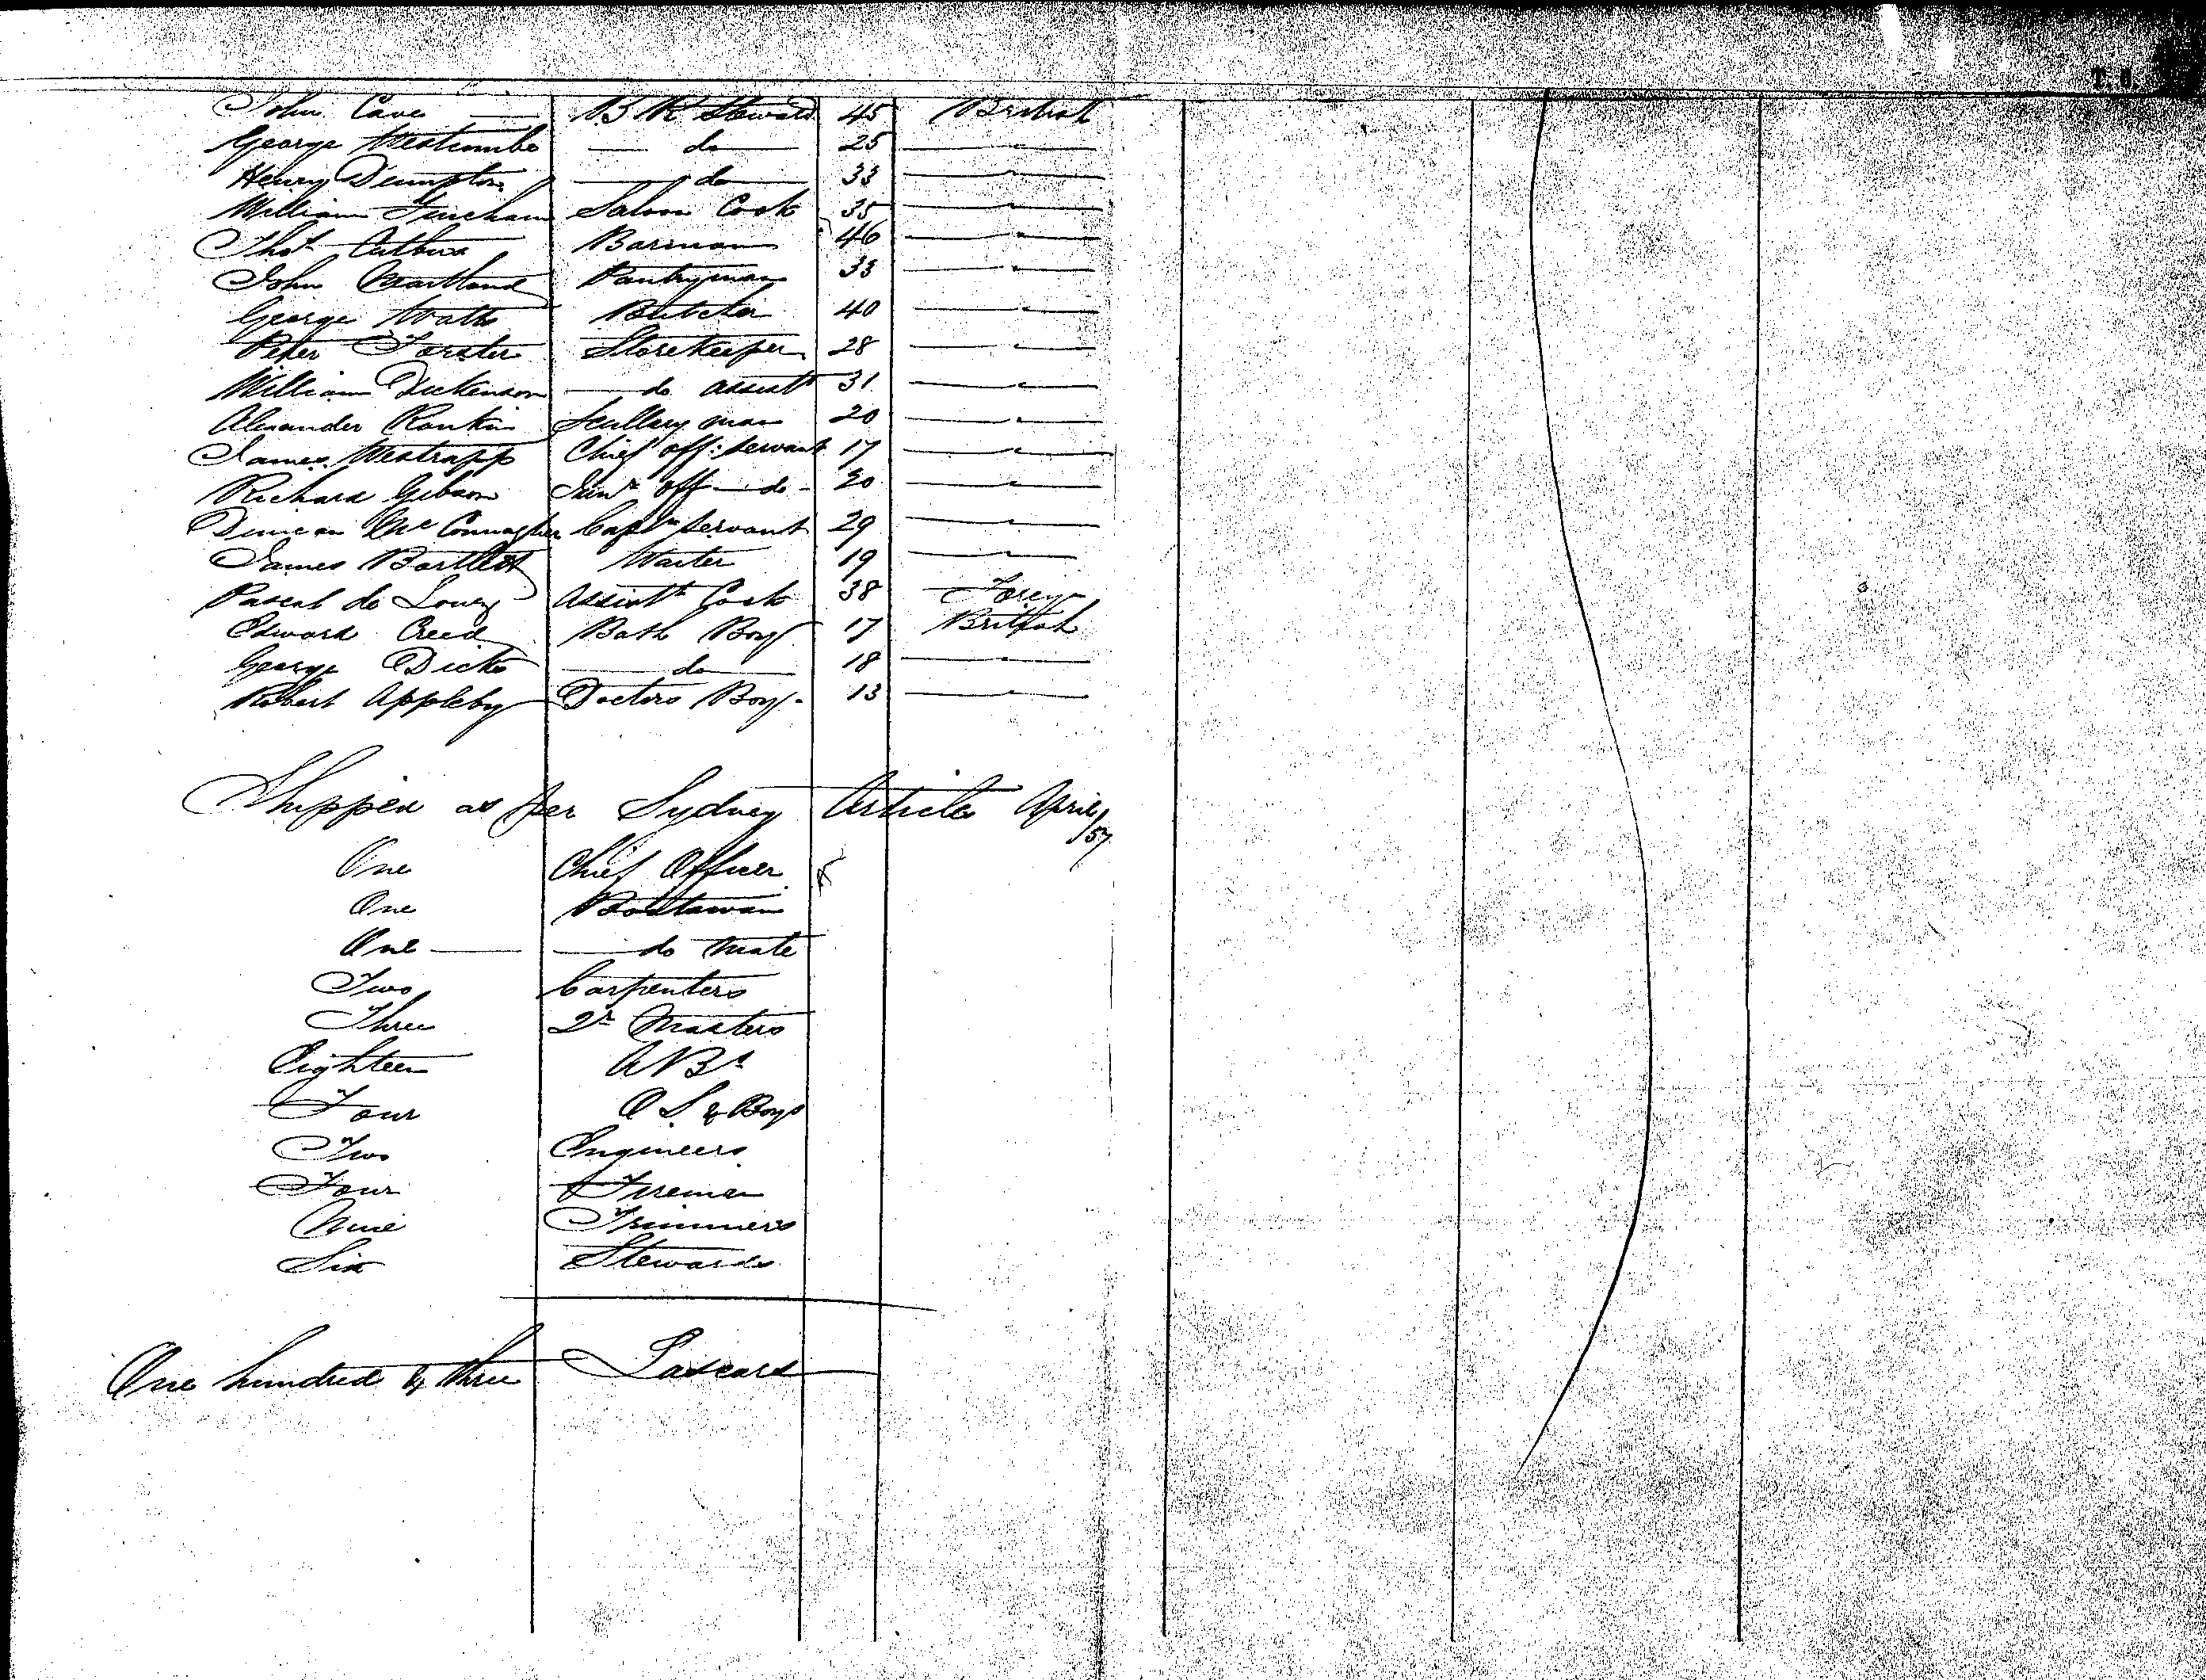 John Cave B R Steward 45 British
George Westcombe do 25 "
Henry Dumpton do 33 "
William Fincham Saloon Cook 35 "
Thos Barman 46 "
John Maitland Pantryman 33 "
George Watts Butcher 40 "
Peter Forster Storekeeper 28 "
William Dickenson do assistt 31 "
Alexander Rankin Scullery man 20 "
James Westrapp Chief off: servant 17 "
Richard Gibson Junr off do 20 "
Duncan Mc Connagher Captn servant 29 "
James Bartlett Waiter 19 "
Pascal de Assistt Cook 38 Foreign
Edward Creed Bath Boy 17 British
George Dicks do 18 "
Robert Appleby Doctors Boy 13 "
Shipped as per Sydney Articles April /57
One Chief Officer
One Boatswain
One do Mate
Two Carpenters
Three 2r Masters
Eighteen A Bs
Four O S & Boys
Two Engineers
Four Firemen
Nine Trimmers
Six Stewards
One hundred & three Lascars